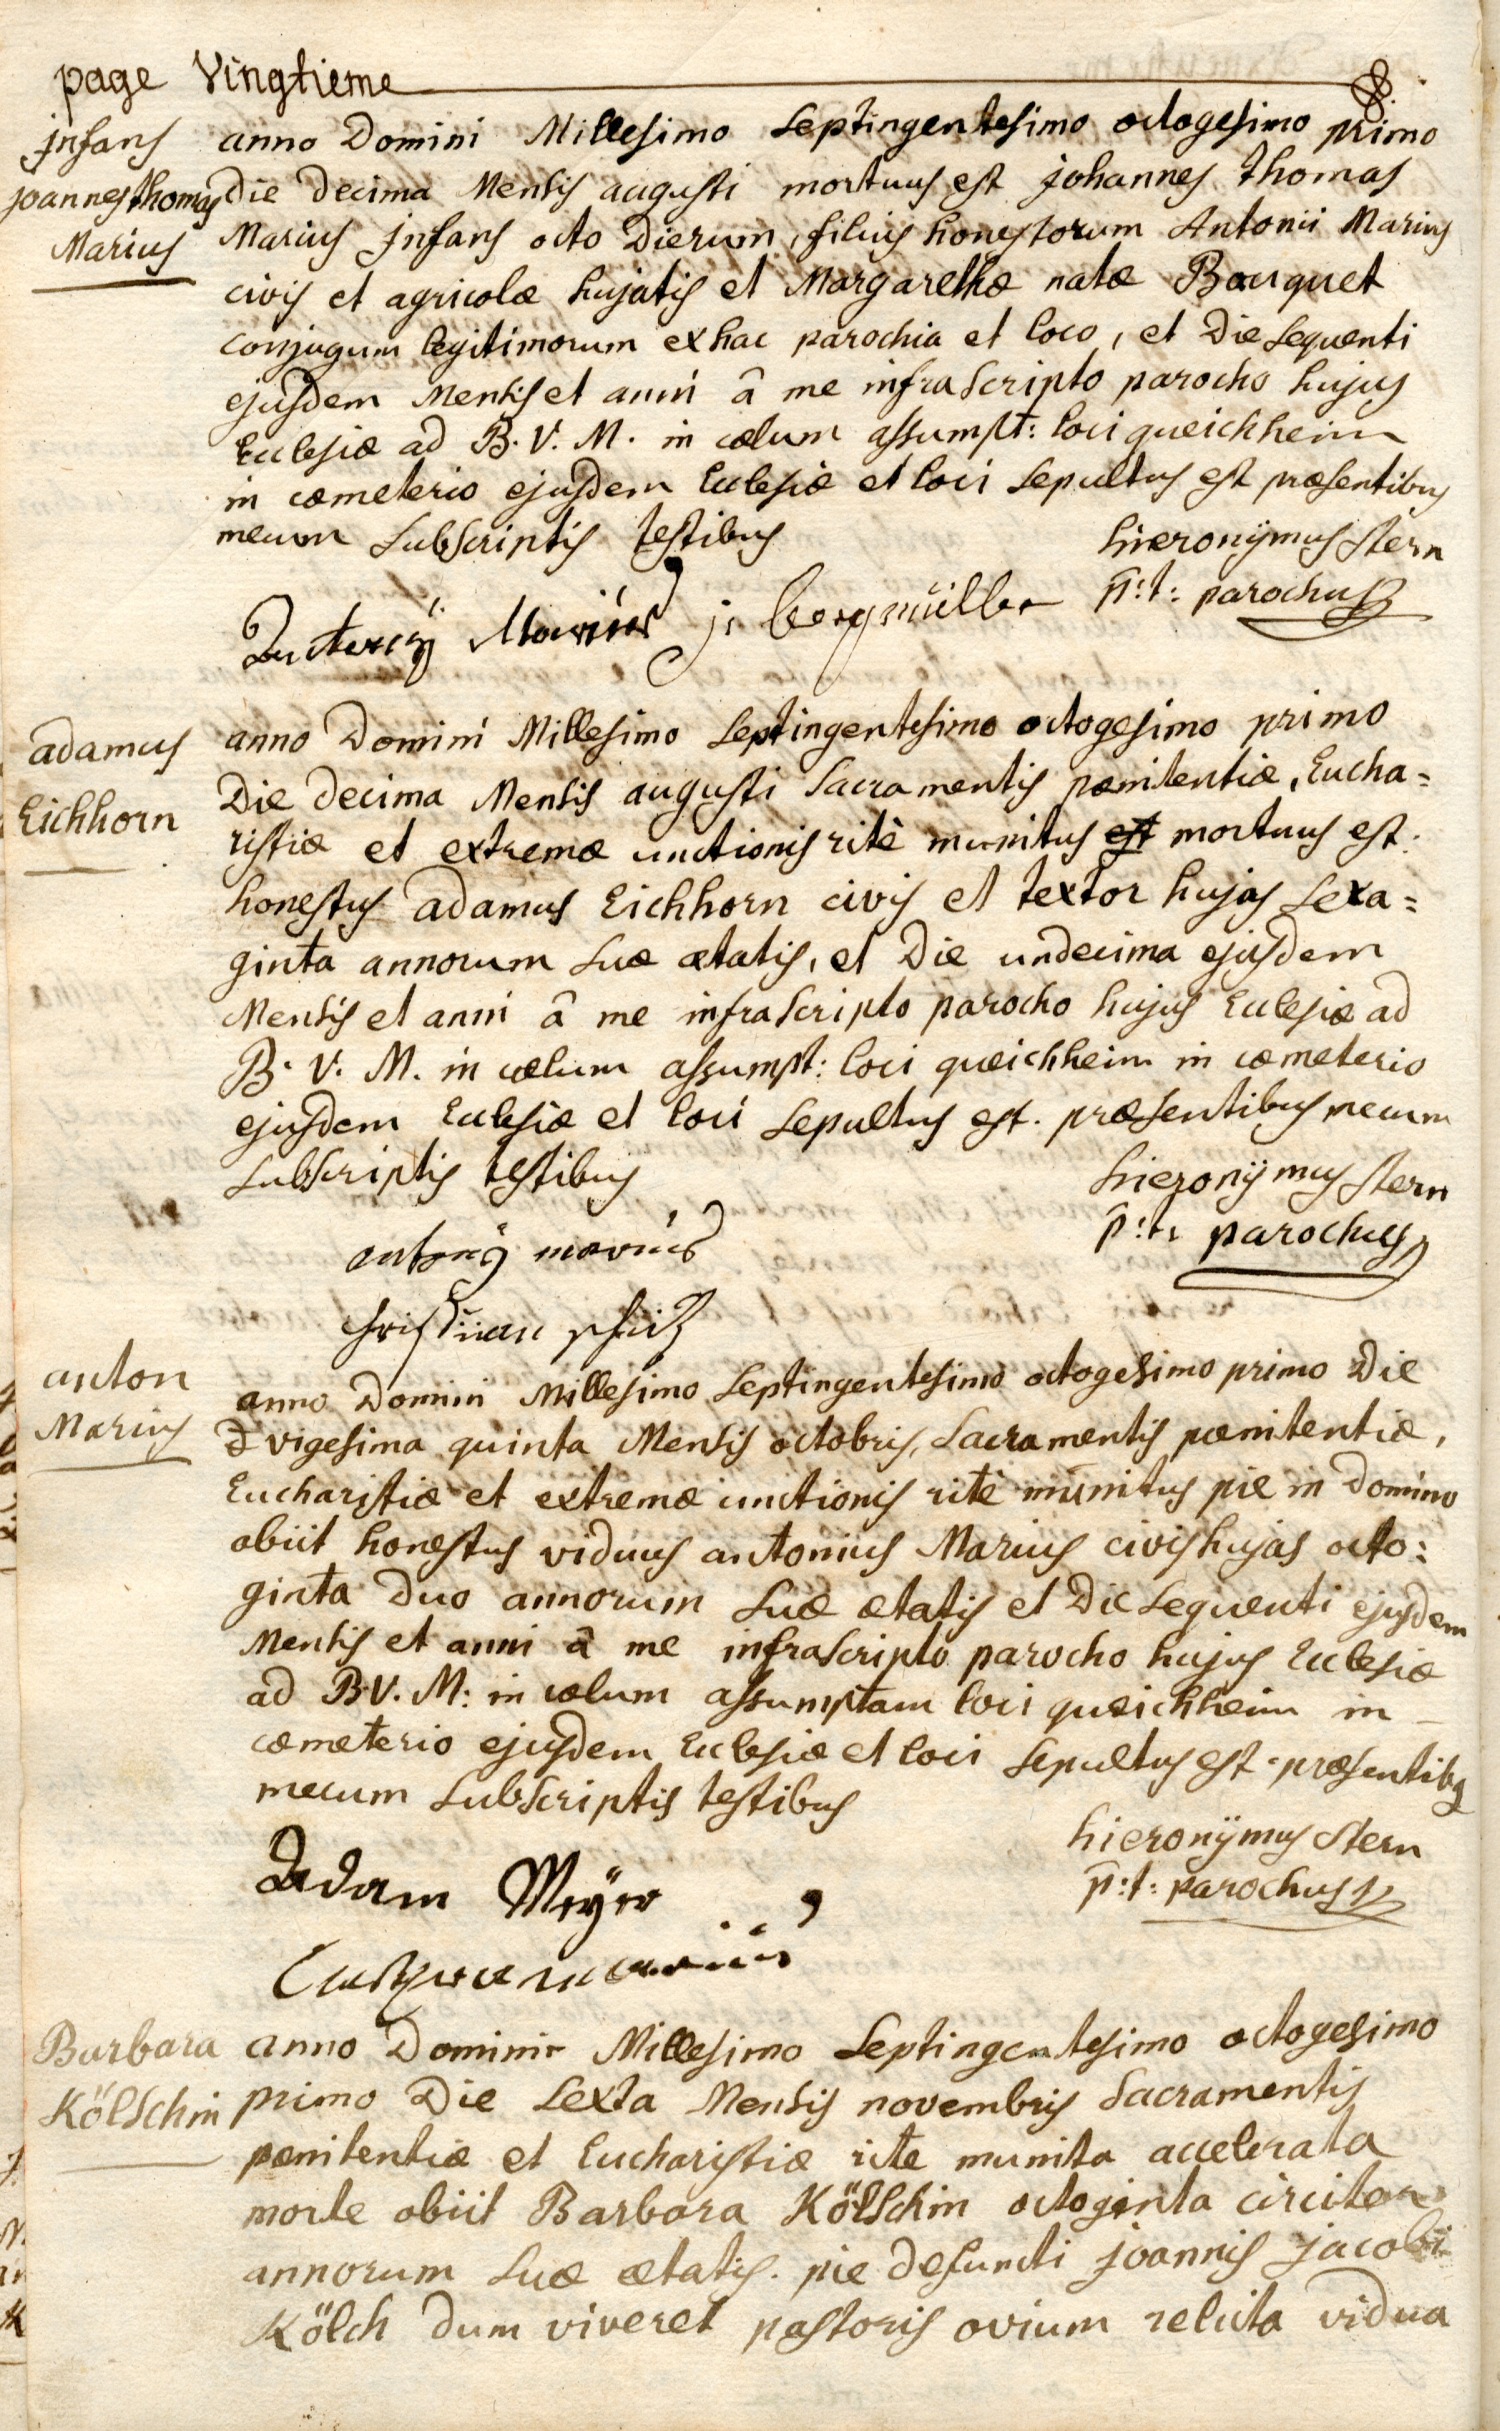 page Vingtieme
jnfans
joannes thomas
Marius
anno Domini Millesimo Septingentesimo octogesimo primo
die decima Mensis augusti mortuus est johannes thomas
Marius jnfans octo dierum, filius honestorum Antonii Marius
civis et agricolæ hujatis et Margarethæ natæ Bouquet
conjugum legitimorum ex hac parochia et loco, et die sequenti
ejusdem Mensis et anni â me infrascripto parocho hujus
Ecclesiæ ad B. V. M. in cœlum assumpt: loci queichheim
in cœmeterio ejusdem Ecclesiæ et loci sepultus est præsentibus
mecum subscriptis testibus
hieronÿmus Stern
p:t: parochus
Antonÿ Marius j: bergmüller
adamus
Eichhorn
anno Domini Millesimo Septingentesimo octogesimo primo
Die decima Mensis augusti Sacramentis pœnitentiæ, Eucha=
ristiæ et extremæ unctionis ritè munitus est mortuus est.
honestus adamus Eichhorn civis et textor hujas sexa=
ginta annorum suæ ætatis, et Die undecima ejusdem
Mensis et anni â me infrascripto parocho hujus Ecclesiæ ad
B. V. M. in cœlum assumpt: loci queichheim in cœmeterio
ejusdem Ecclesiæ et loci sepultus est. præsentibus mecum
subscriptis testibus
hieronÿmus Stern
p:t: parochus
antonÿ marius
anton
Marius
anno Domini Millesimo Septingentesimo octogesimo primo Die
vigesima quinta Mensis octobris, Sacramentis pœnitentiæ,
Eucharistiæ et extremæ unctionis ritè munitus pie in domino
obiit honestus viduus antonius Marius civis hujas octo:
ginta duo annorum suæ ætatis et Die sequenti ejusdem
Mensis et anni â me infrascripto parocho hujus Ecclesiæ
ad B. V. M: in cœlum assumptam loci queichheim in
cœmeterio ejusdem Ecclesiæ et loci sepultus est. præsentibus
mecum subscriptis testibus
hieronÿmus Stern
p:t: parochus
Adam Meÿer
marius
Barbara
Kölschin
anno Domini Millesimo Septingentesimo octogesimo
primo Die sexta Mensis novembris Sacramentis
pœnitentiæ et Eucharistiæ rite munita accelerata
morte obiit Barbara Kölschin octoginta circiter
annorum suæ ætatis. pie defuncti joannis jacobi
Kölch dum viveret pastoris ovium relicta vidua